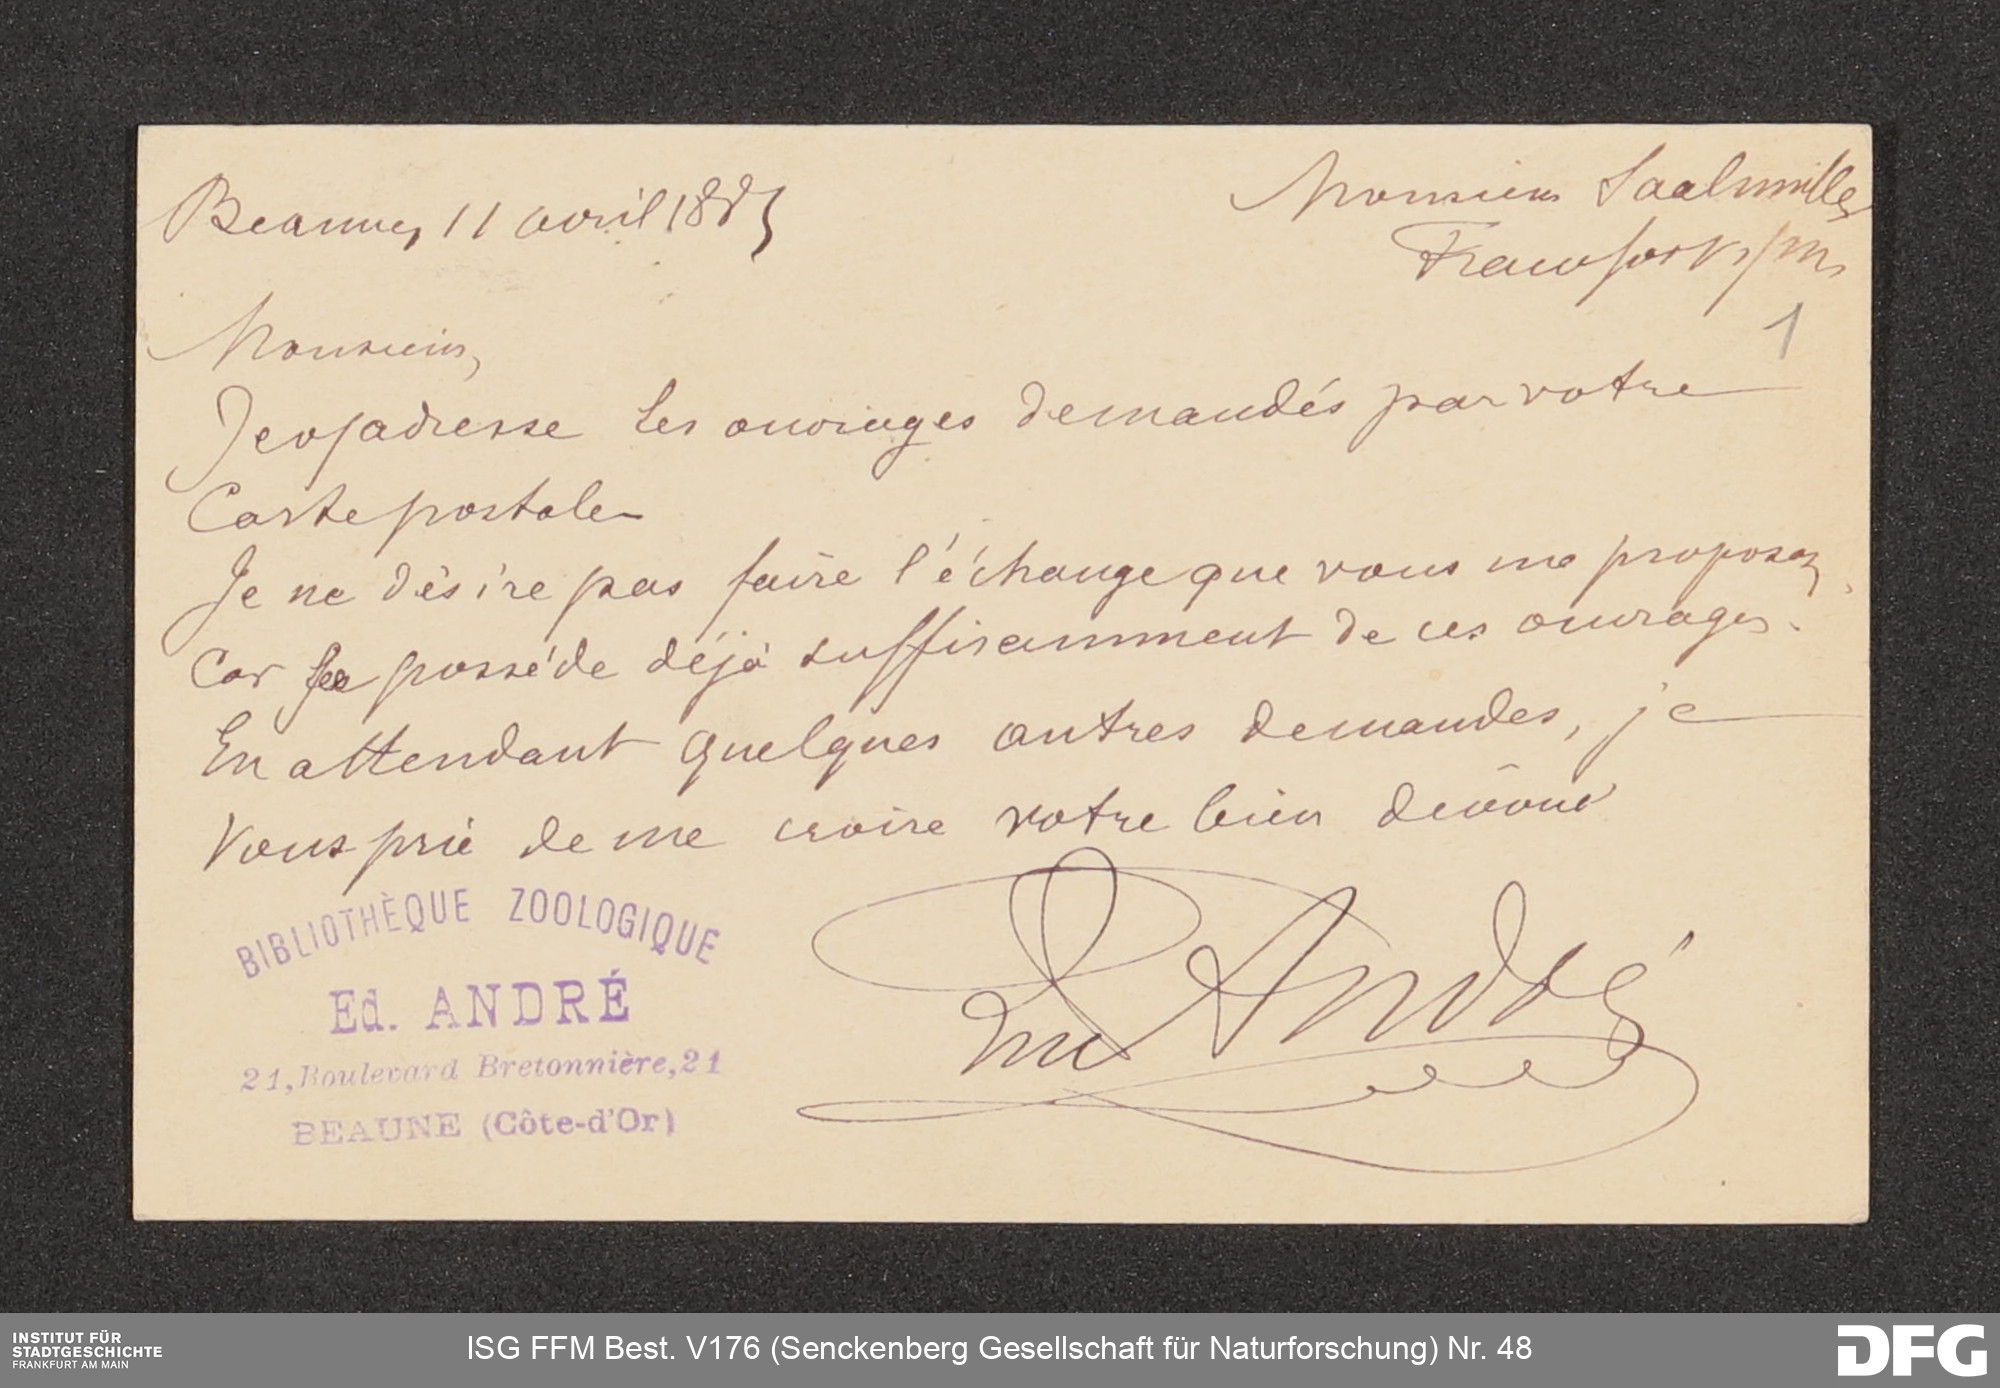 Beaune, 11 avril 1885
Monsieur Saalmüller
Francfort s/m
1
Monsieur,
Je vs adresse les ouvrages demandés par votre
Carte postale
Je ne désire pas faire l'échange que vous me proposez,
Car je possède déjà suffisamment de ces ouvrages.
En attendant quelques autres demandes, je
vous prie de me croire votre bien dévoué
Ed André
BIBLIOTHÈQUE ZOOLOGIQUE
Ed. ANDRÉ
21, Boulevard Bretonnière, 21
BEAUNE (Côte-d'Or)
INSTITUT FÜR
STADTGESCHICHTE
FRANKFURT AM MAIN
ISG FFM Best. V176 (Senckenberg Gesellschaft für Naturforschung) Nr. 48
DFG